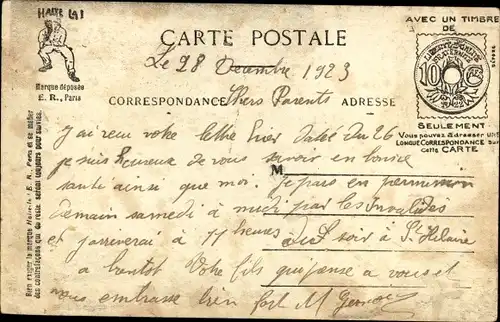 HALTE LA!
Marque déposée
E. R., Paris
CARTE POSTALE
AVEC UN TIMBRE
DE
10 CES
SEULEMENT
Vous pouvez adresser UNE
LONGUE CORRESPONDANCE sur
cette CARTE
CORRESPONDANCE
ADRESSE
M
Bien exiger la marque Halte-là! E. R., Paris et se méfier
des contrefaçons qui du reste seront toujours poursuivies.
Le 28 Decembre 1923
Chers Parents
J'ai reçu votre lettre hier Daté du 26
je suis heureux de vous savoir en bonne
santé ainsi que moi. Je pars en permission
demain samedi à midi par les invalides
et j'arriverai à 11 heures du soir à St Hilaire
a bientot Votre fils qui pense a vous et
vous embrasse bien fort M